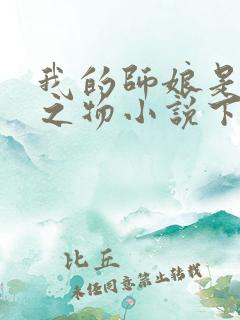 我的師娘是
之物小說下
比丘
未经同意禁止转载